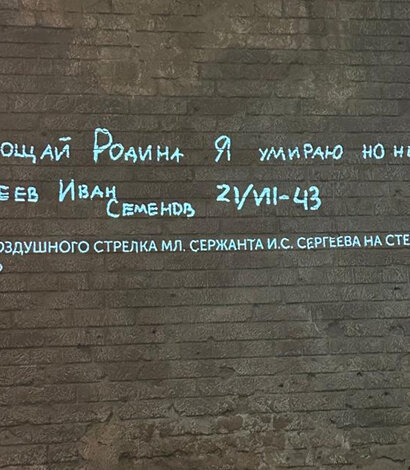 ОЩАЙ РОДИНА Я УМИРАЮ НО НЕ
ЕЕВ ИВАН СЕМЕНОВ 21/VII-43
ОЗДУШНОГО СТРЕЛКА МЛ. СЕРЖАНТА И.С. СЕРГЕЕВА НА СТЕ